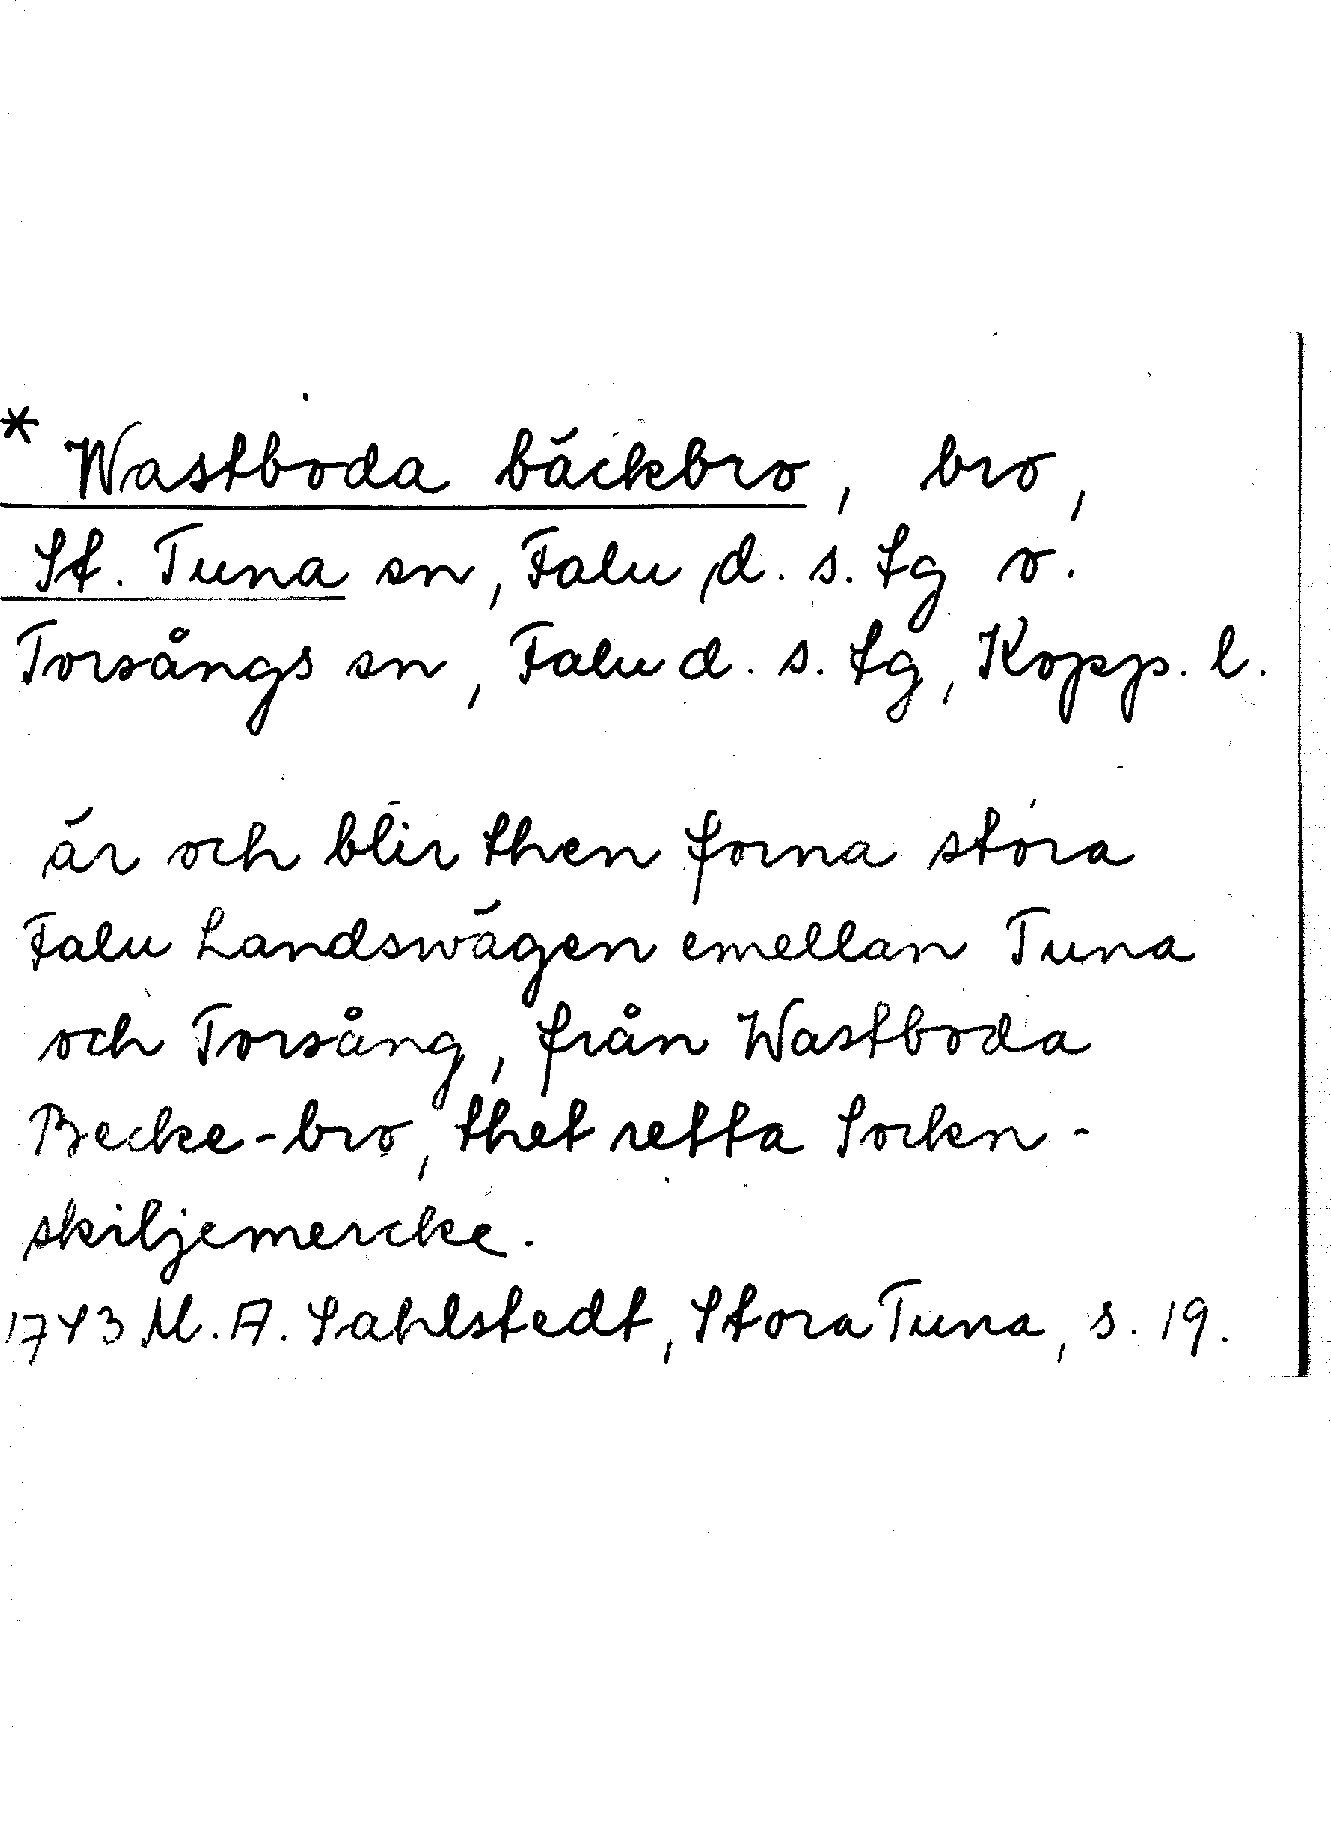 * Wastboda bäckbro, bro,
St. Tuna sn, Falu d. s. tg o.
Torsångs sn, Falu d. s. tg, Kopp. l.
är och blir then forna stora
Falu Landswägen emellan Tuna
och Torsång, från Wastboda
Becke-bro, thet retta Sockn-
skiljemercke.
1743 M. A. Sahlstedt, Stora Tuna, s. 19.